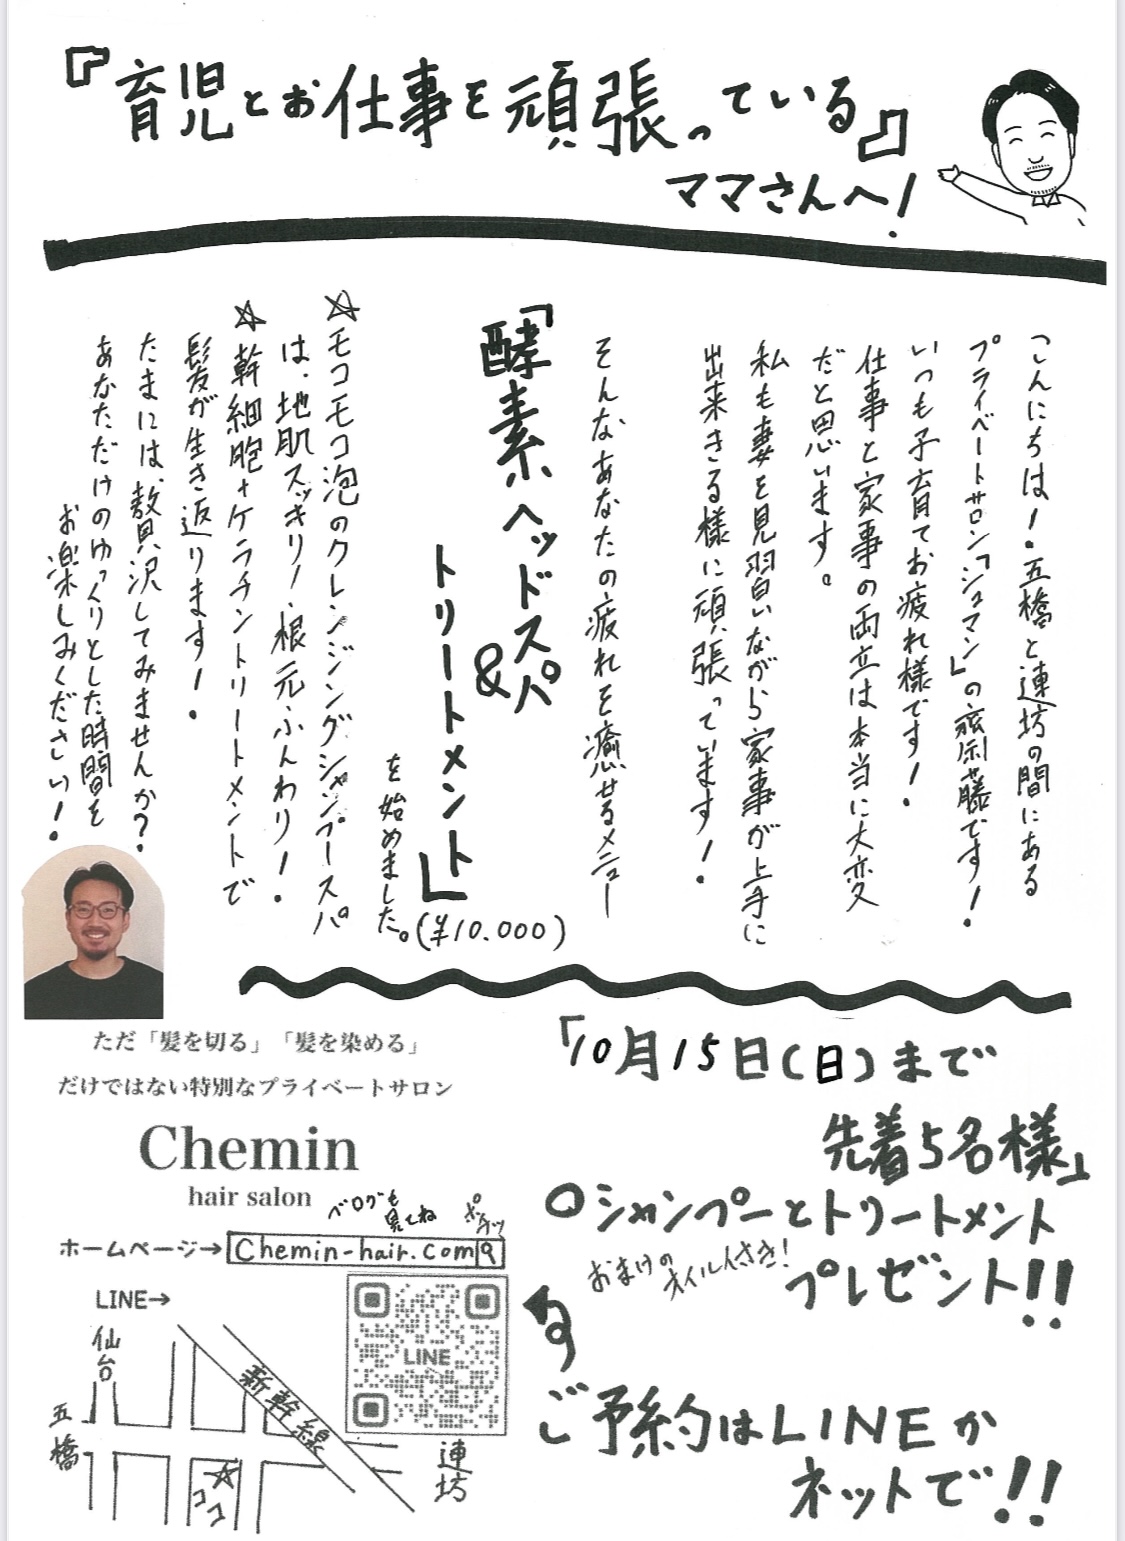 『育児とお仕事を頑張っている』
ママさんへ！
こんにちは！五橋と連坊の間にある
プライベートサロン「シュマン」の齋藤です！
いつも子育てお疲れ様です！
仕事と家事の両立は本当に大変
だと思います。
私も妻を見習いながら家事が上手に
出来きる様に頑張っています！
そんなあなたの疲れを癒せるメニュー
「酵素ヘッドスパ
&
トリートメント」
(¥10.000)
を始めました。
☆モコモコ泡のクレンジングシャンプースパ
は、地肌スッキリ！根元ふんわり！
☆幹細胞+ケラチントリートメントで
髪が生き返ります！
たまには、贅沢してみませんか？
あなただけのゆっくりとした時間を
お楽しみください！
ただ「髪を切る」「髪を染める」
だけではない特別なプライベートサロン
Chemin
hair salon
ブログも
見てね
ポチッ
ホームページ→ Chemin-hair.com
LINE→
LINE
仙台
五橋
新幹線
連坊
☆
ココ
「10月15日(日)まで
先着5名様」
○シャンプーとトリートメント
おまけの
オイル付き！
プレゼント!!
ご予約はLINEか
ネットで!!